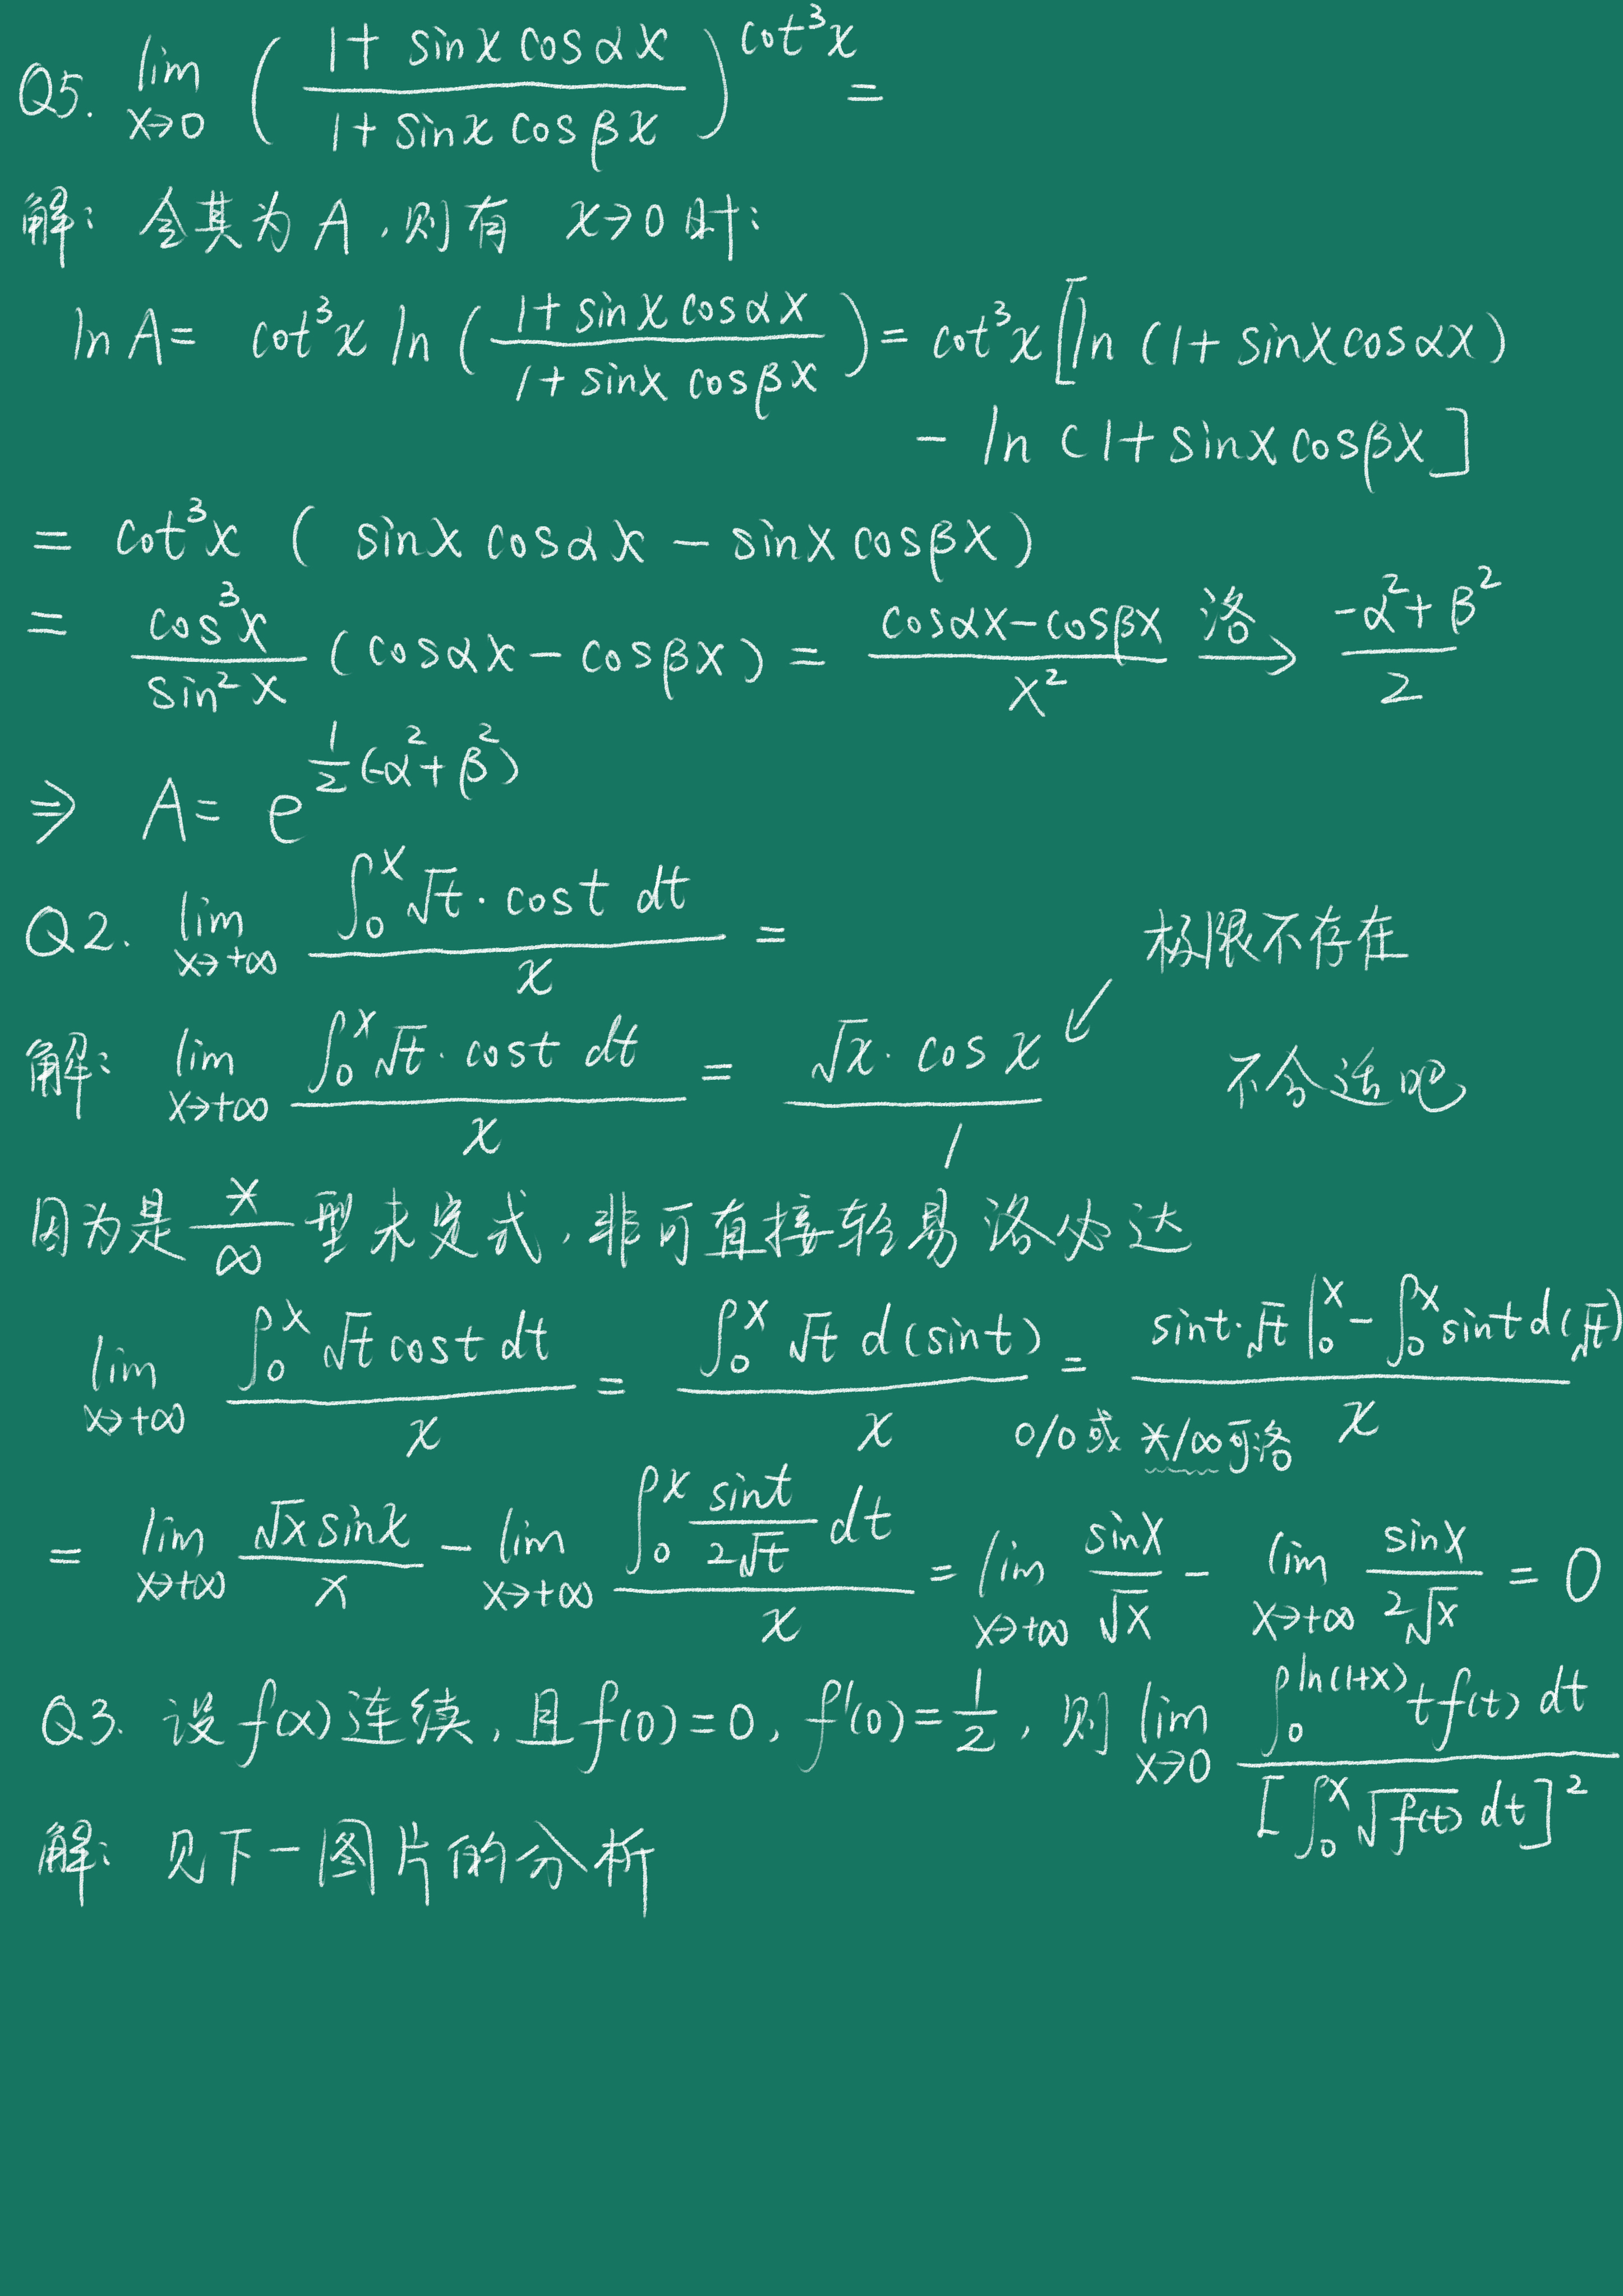 Q5. lim x→0 ( (1+ sinx cosαx) / (1+ sinx cosβx) )^cot³x =
解: 令其为A,则有 x→0时:
lnA= cot³x ln ( (1+sinx cosαx) / (1+sinx cosβx) ) = cot³x[ln (1+sinxcosαx)
- ln (1+sinxcosβx]
= cot³x ( sinx cosαx - sinx cosβx)
= cos³x / sin²x (cosαx - cosβx) = (cosαx-cosβx) / x² 洛→ (-α²+β²) / 2
⇒ A= e^(1/2 (-α²+β²))
Q2. lim x→+∞ ∫₀ˣ √t · cost dt / x =
极限不存在
解: lim x→+∞ ∫₀ˣ √t · cost dt / x = √x · cos x / 1 ↙
不合适吧
因为是 */∞ 型未定式,非可直接轻易洛必达
lim x→+∞ ∫₀ˣ √t cost dt / x = ∫₀ˣ √t d(sint) / x = (sint·√t |₀ˣ - ∫₀ˣ sint d(√t)) / x
0/0或 */∞可洛
= lim x→+∞ √x sinx / x - lim x→+∞ ∫₀ˣ sint/2√t dt / x = lim x→+∞ sinx/√x - lim x→+∞ sinx/2√x = 0
Q3. 设f(x)连续,且f(0)=0, f'(0)=1/2, 则 lim x→0 ∫₀^ln(1+x) tf(t) dt / [∫₀ˣ √f(t) dt]²
解: 见下一图片的分析